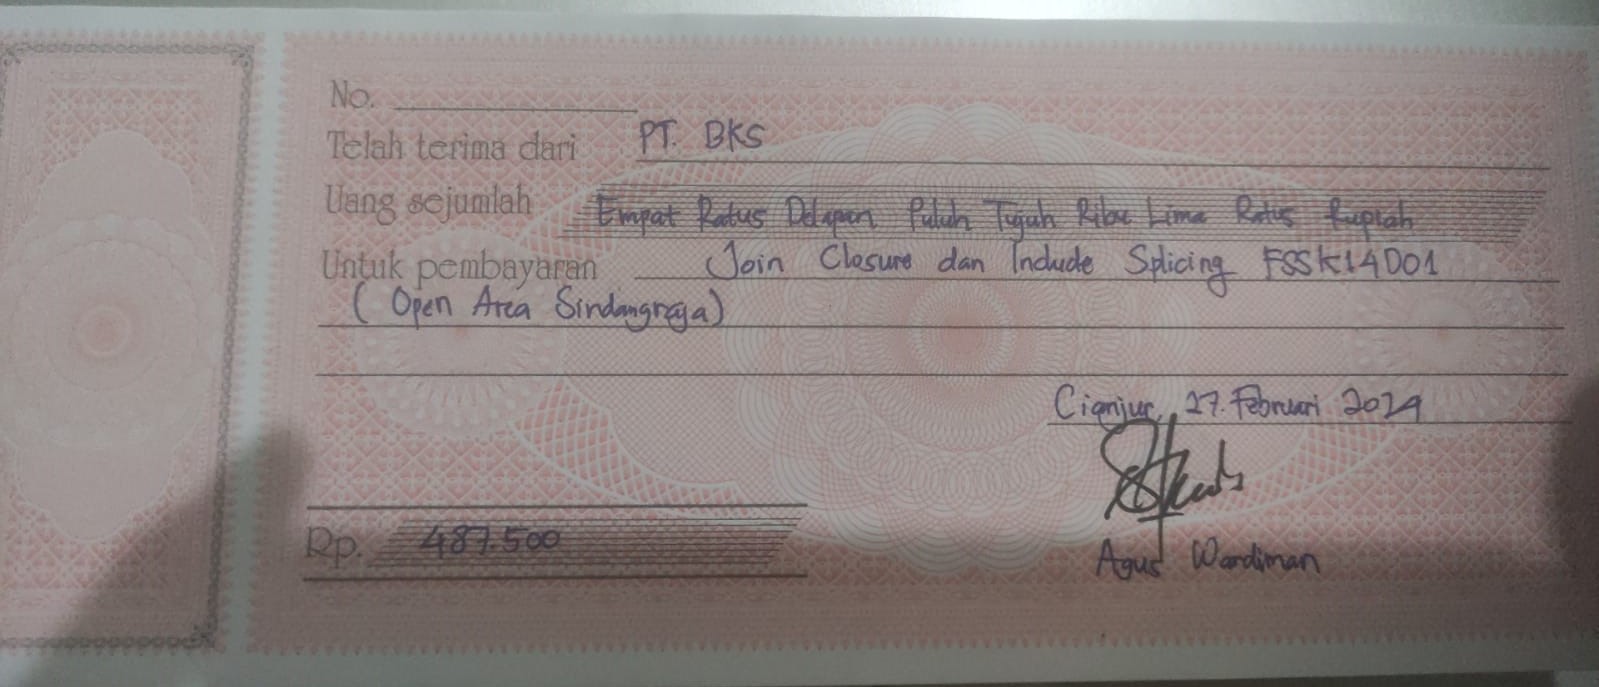 No.
Telah terima dari PT. BKS
Uang sejumlah Empat Ratus Delapan Puluh Tujuh Ribu Lima Ratus Rupiah
Untuk pembayaran Join Closure dan Include Splicing FSSK14D01
( Open Area Sindangraja)
Cianjur, 27. Februari 2024
Rp. 487.500
Agus Wardiman